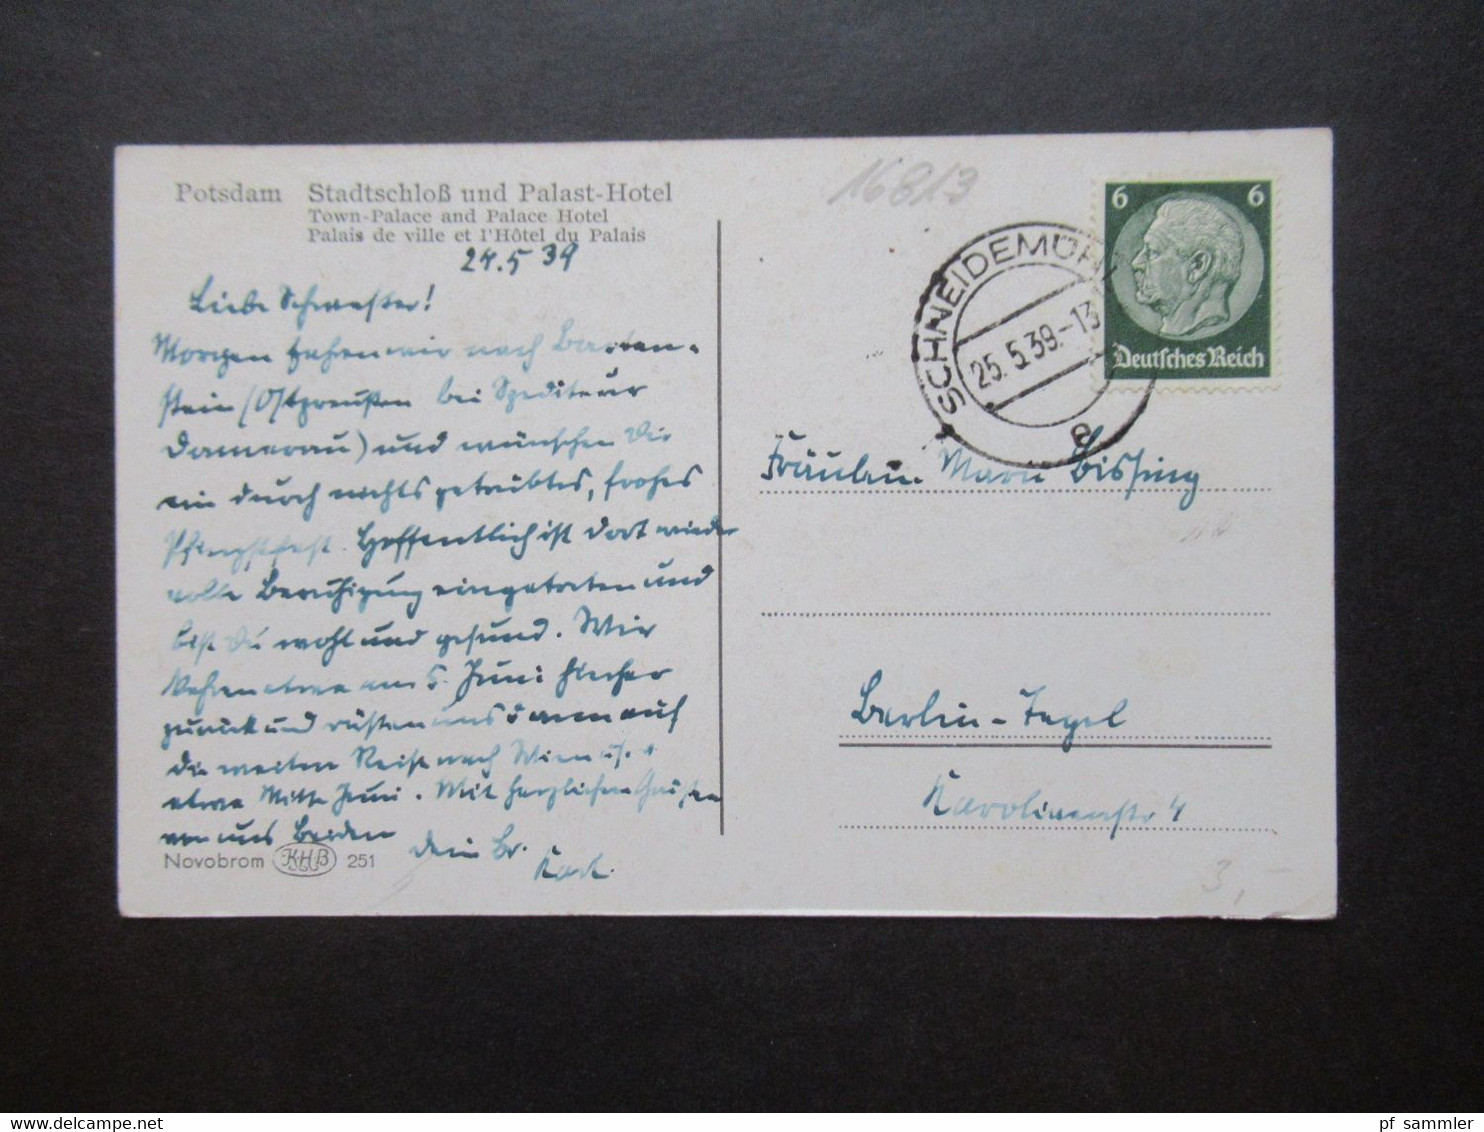 Potsdam Stadtschloß und Palast-Hotel
Town-Palace and Palace Hotel
Palais de ville et l'Hôtel du Palais
24.5 39
Liebe Schwester!
Morgen fahren wir nach Barten-
stein (Ostpreußen bei Spediteur
Damerau) und wünschen Dir
ein durch nichts getrübtes, frohes
Pfingstfest. Hoffentlich ist dort wieder
volle Beruhigung eingetreten und
bist Du wohl und gesund. Wir
kehren etwa am 5. Juni hierher
zurück und rüsten uns dann auf
die weitere Reise nach Wien
etwa Mitte Juni. Mit herzlichen Grüßen
von uns Beiden
Dein Br.
Karl.
Novobrom KHB 251
16813
SCHNEIDEMÜHL
25.5.39.-13
a
6 6
Deutsches Reich
Fräulein Marie Bissing
Berlin-Tegel
Karolinenstr 4
3,-
pf_sammler
www.delcampe.net